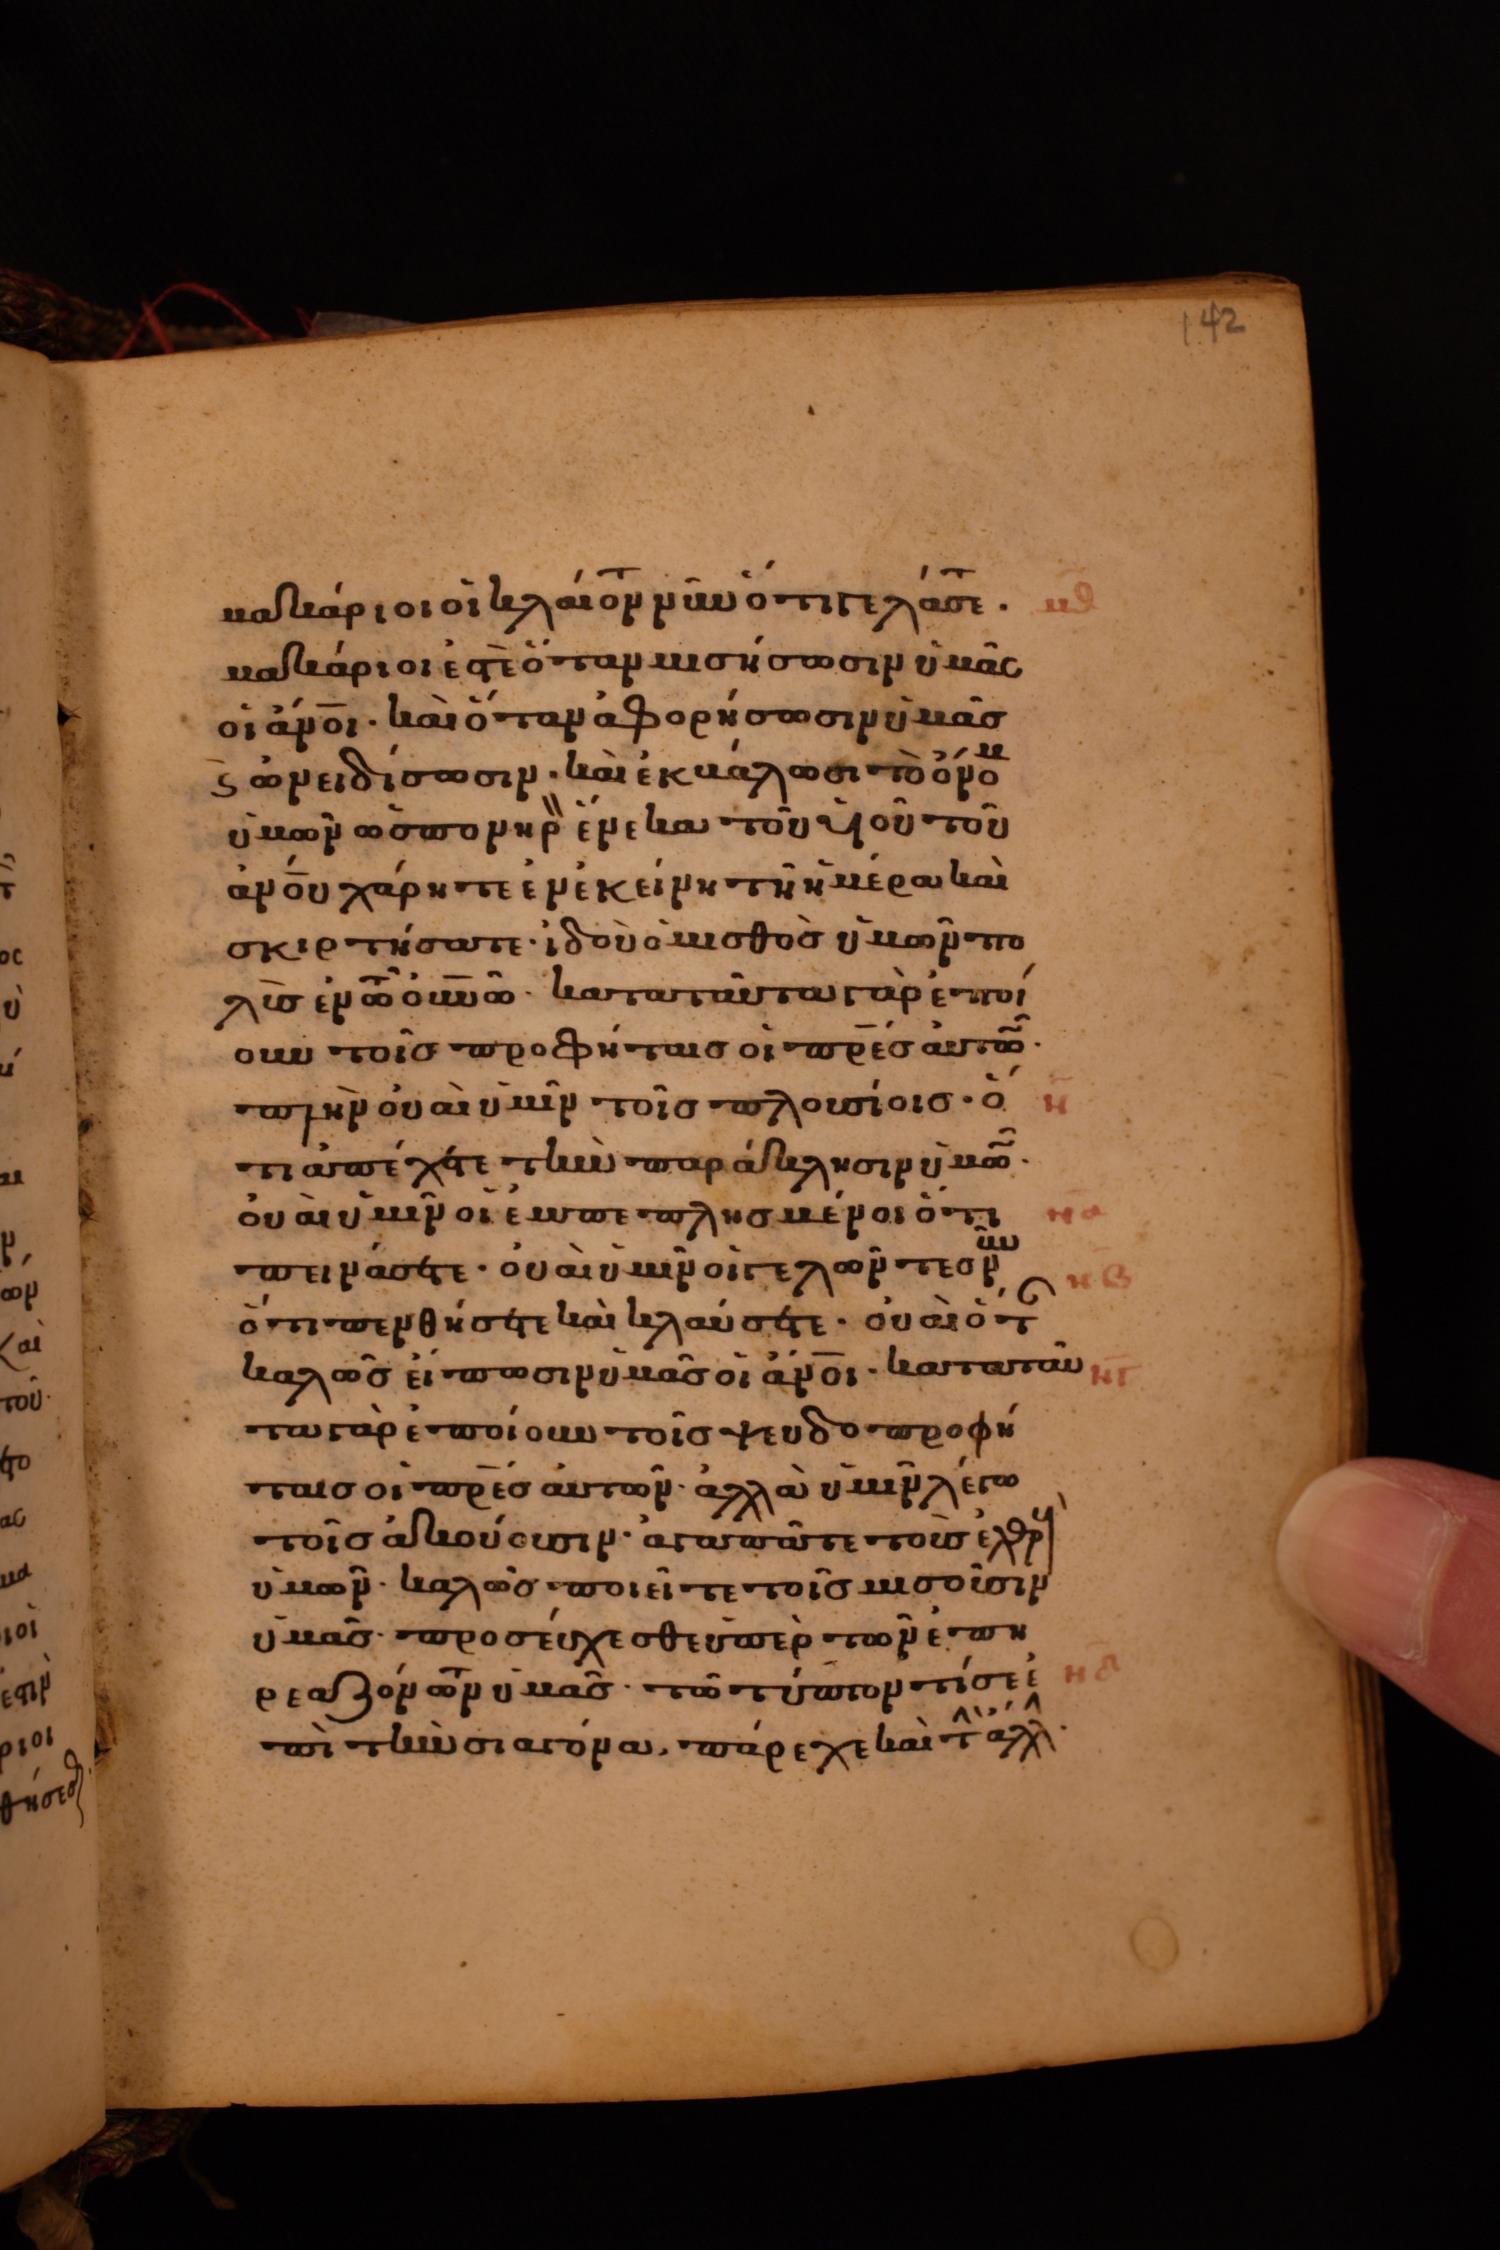 142
μακάριοι οἱ κλαίοντ νῦν ὅτι γελάσε̄. μθ
μακάριοι ἐστὲ ὅταν μισήσωσιν ὑμᾶς
οἱ ἄνο̄ι. καὶ ὅταν ἀφορήσωσιν ὑμᾶσ
ϛ ὠνειδίσωσιν. καὶ ἐκβάλωσι τὸ ὄνομ
ὑμῶν ὡσ πονηρὸ̀ ἕνεκα τοῦ υἱοῦ τοῦ
ἀνο̄ύ χάρητε ἐν ἐκείνη τῆ ἡμέρα καὶ
σκιρτήσατε. ἰδοὺ ὁ μισθὸσ ὑμῶν πο
λὺσ ἐν τῶ οὐνῶ. κατα ταῦτα γὰρ ἐποί
ουν τοῖσ προφήταισ οἱ πρ̄έσ ἀυτῶ.
πλὴν ὀυαὶ ὑμῖν τοῖσ πλουσίοισ. ὅ ν̄
τι ἀπέχετε τὴν παράκλησιν ὑμῶ.
ὀυαὶ ὑμῖν οἱ ἐμπεπλησμένοι ὅτι να
πεινάσετε. ὀυαὶ ὑμῖν οἱ γελῶντεσ νῦν νβ
ὅτι πενθήσετε καὶ κλαύσετε. ὀυαὶ ὅτ
καλῶσ εἴπωσιν ὑμᾶσ οἱ ἄνο̄ι. κατα ταῦ νγ
τα γὰρ ἐποίουν τοῖσ ψευδοπροφή
ταισ οἱ πρ̄έσ ἀυτῶν. ἀλλὰ ὑμῖν λέγω
τοῖσ ἀκούουσιν. ἀγαπᾶτε τοὺσ ἐχθρ
ὑμῶν. καλῶσ ποιεῖτε τοῖσ μισοῦσιν
ὑμᾶσ. προσεύχεσθε ὑπὲρ τῶν ἐπη
ρεαζόντων ὑμᾶσ. τῶ τύπτοντί σε ἐ νδ
πὶ τὴν σιαγόνα, πάρεχε καὶ τ̀ ἄλλ.